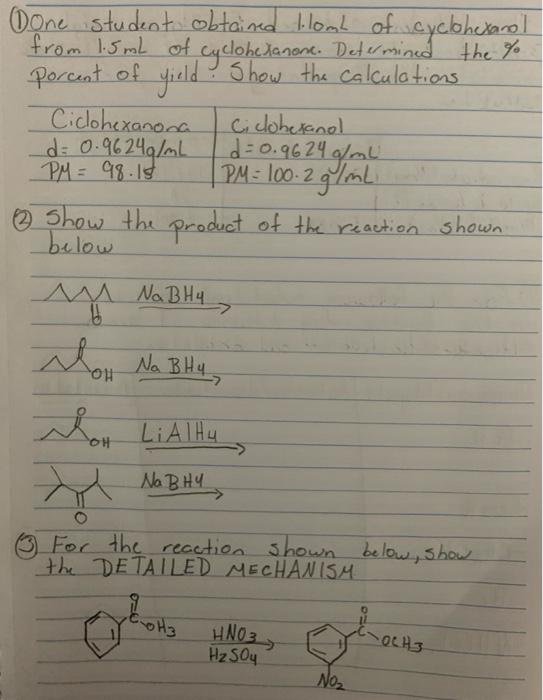 ① One student obtained 1.10mL of cyclohexanol
from 1.5mL of cyclohexanone. Determined the %
porcent of yield? Show the calculations
Ciclohexanona
Ciclohexanol
d= 0.9624g/mL
d=0.9624 g/mL
PM = 98.15
PM= 100.2 g/mL
② Show the product of the reaction shown
below
NaBH4
O
O
OH
NaBH4
O
OH
LiAlH4
NaBH4
O
③ For the reaction shown below, show
the DETAILED MECHANISM
O
C
OH3
HNO3
H2SO4
O
C
OCH3
NO2